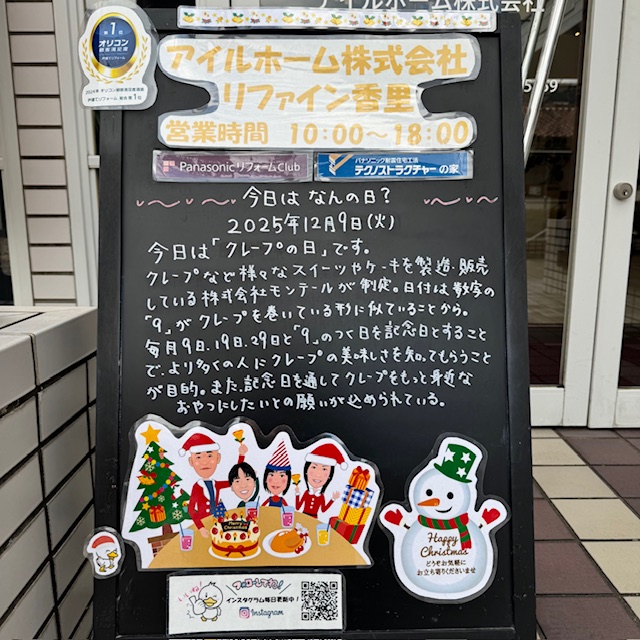 アイルホーム株式会社
第1位
オリコン
顧客満足度
2024年 オリコン顧客満足度調査
戸建てリフォーム 総合 第1位
アイルホーム株式会社
リファイン香里
営業時間 10:00～18:00
Panasonic リフォームClub
パナソニック耐震住宅工法
テクノストラクチャーの家
今日は なんの日？
2025年12月9日(火)
今日は「クレープの日」です。
クレープなど様々なスイーツやケーキを製造・販売
している株式会社モンテールが制定。日付は数字の
「9」がクレープを巻いている形に似ていることから。
毎月9日、19日、29日と「9」のつく日を記念日とすること
で、より多くの人にクレープの美味しさを知ってもらうこと
が目的。また、記念日を通してクレープをもっと身近な
おやつにしたいとの願いが込められている。
Merry
Christmas
Happy
Christmas
どうぞお気軽に
お立ち寄りくださいませ
いいね!
フォローしてね!
インスタグラム毎日更新中！
Instagram